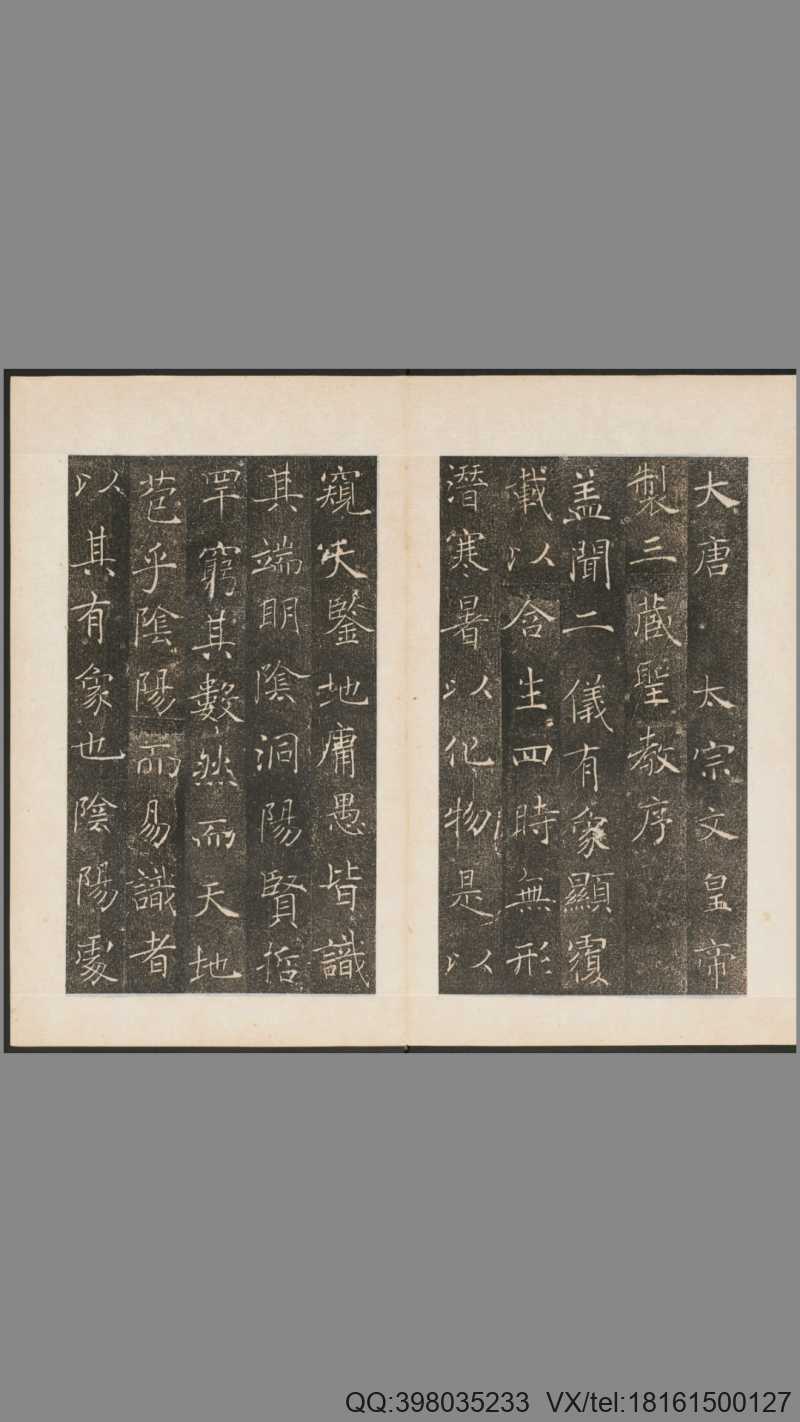 大唐 太宗文皇帝
製三蔵聖教序
盖聞二儀有象顯覆
載以含生四時無形
潛寒暑以化物是以
窺天鑒地庸愚皆識
其端明陰洞陽賢哲
罕窮其數然而天地
苞乎陰陽而易識者
以其有象也陰陽處
QQ:398035233 VX/tel:18161500127